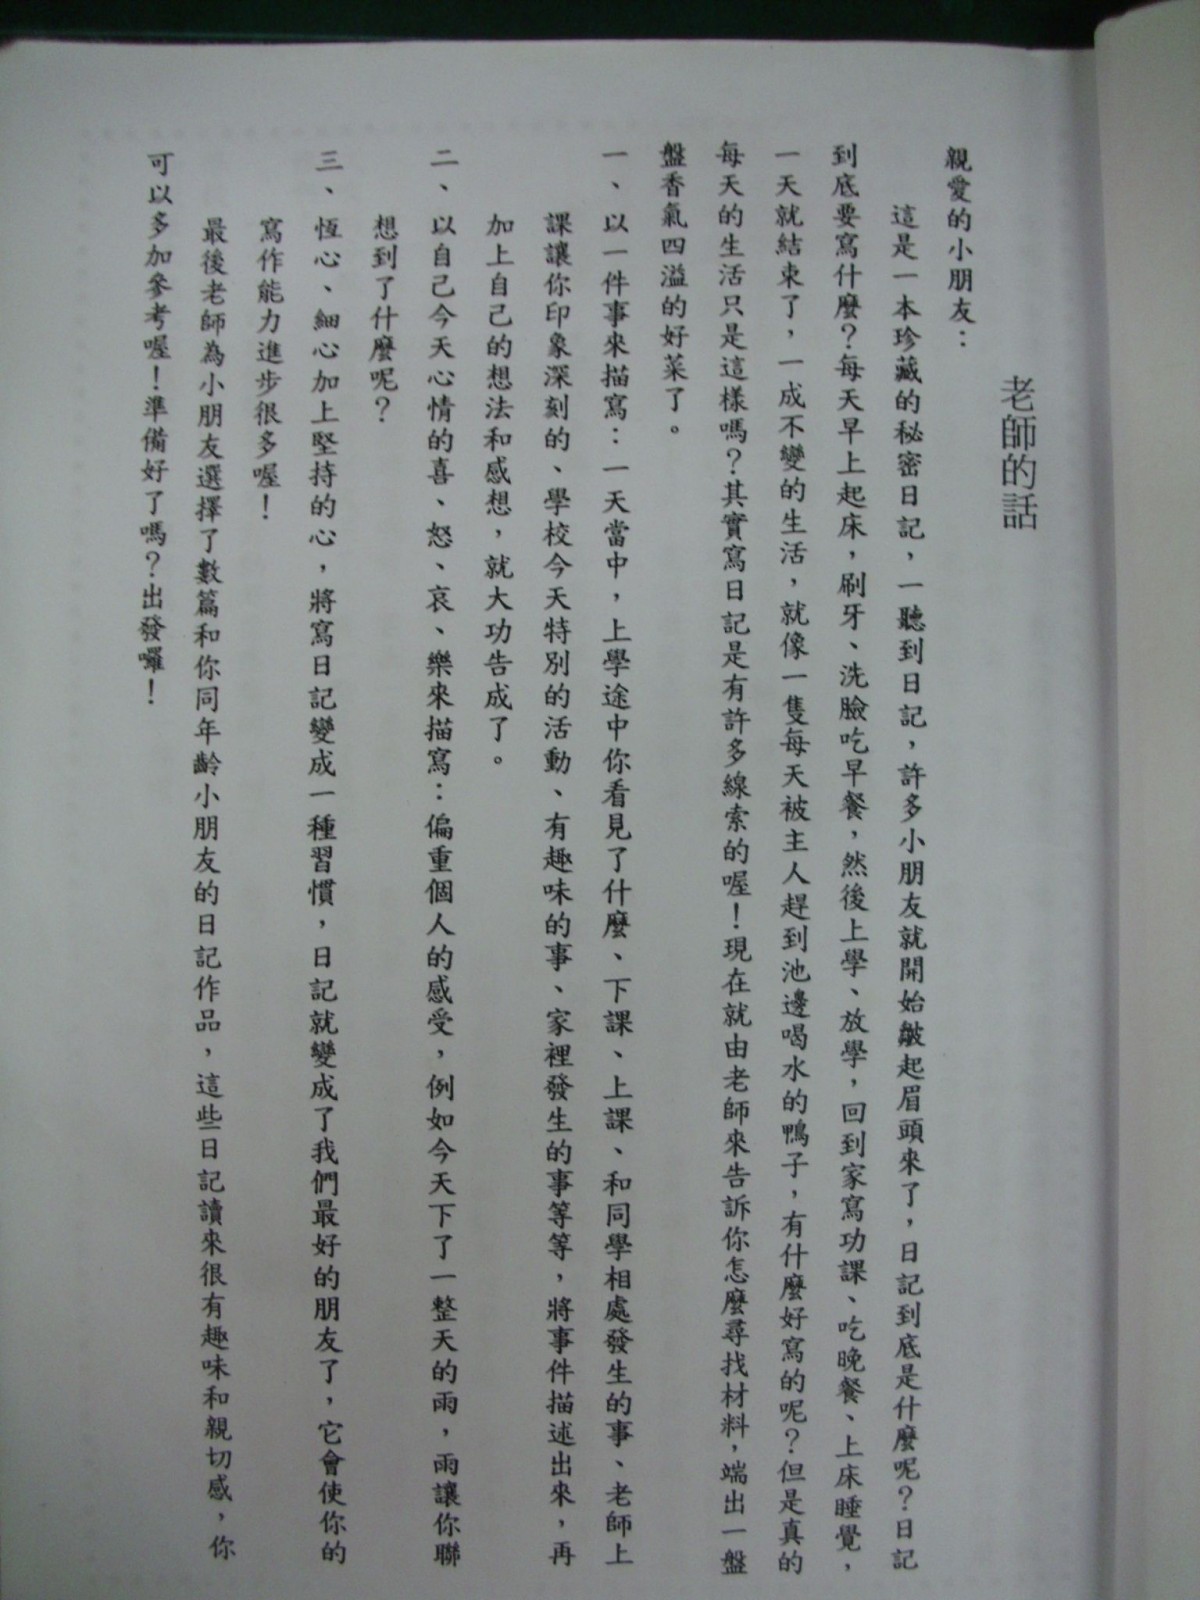 老師的話
親愛的小朋友：
這是一本珍藏的秘密日記，一聽到日記，許多小朋友就開始皺起眉頭來了，日記到底是什麼呢？日記
到底要寫什麼？每天早上起床，刷牙、洗臉吃早餐，然後上學、放學，回到家寫功課、吃晚餐、上床睡覺，
一天就結束了，一成不變的生活，就像一隻每天被主人趕到池邊喝水的鴨子，有什麼好寫的呢？但是真的
每天的生活只是這樣嗎？其實寫日記是有許多線索的喔！現在就由老師來告訴你怎麼尋找材料，端出一盤
盤香氣四溢的好菜了。
一、以一件事來描寫：一天當中，上學途中你看見了什麼、下課、上課、和同學相處發生的事、老師上
課讓你印象深刻的、學校今天特別的活動、有趣味的事、家裡發生的事等等，將事件描述出來，再
加上自己的想法和感想，就大功告成了。
二、以自己今天心情的喜、怒、哀、樂來描寫：偏重個人的感受，例如今天下了一整天的雨，雨讓你聯
想到了什麼呢？
三、恆心、細心加上堅持的心，將寫日記變成一種習慣，日記就變成了我們最好的朋友了，它會使你的
寫作能力進步很多喔！
最後老師為小朋友選擇了數篇和你同年齡小朋友的日記作品，這些日記讀來很有趣味和親切感，你
可以多加參考喔！準備好了嗎？出發囉！